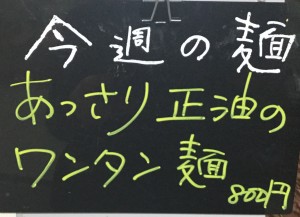 今週の麺
あっさり正油の
ワンタン麺
800円